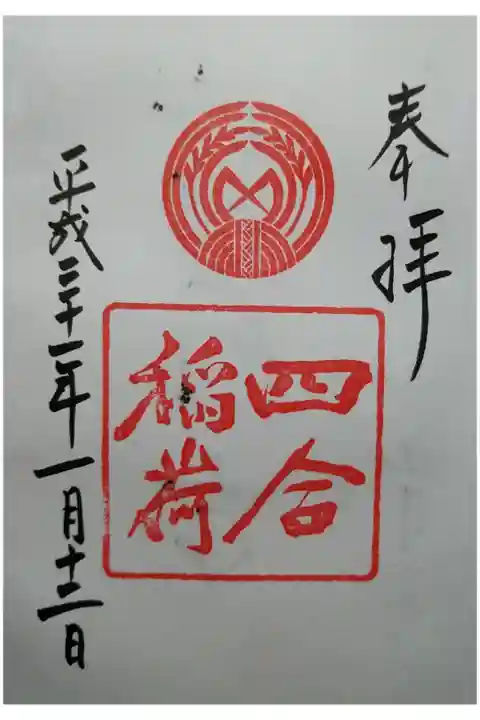 奉拝
四合
稲荷
平成三十一年一月十二日